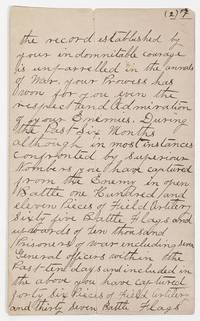 (2) 7
the record established by
your indomnitable courage
is unparrelled in the annals
of War. your prowess has
won for you even the
respect and Admiration
of your Enemies. During
the Past Six Months
although in most instances
confronted by superior
numbers you have captured
from the Enemy in open
Battle One Hundred and
eleven Pieces of Field Artillery
sixty five Battle Flags and
upwards of ten thousand
Prisoners of war including seven
General officers within the
Past ten days and included in
the above you have captured
forty six Pieces of Field Artillery
and thirty seven Battle Flags